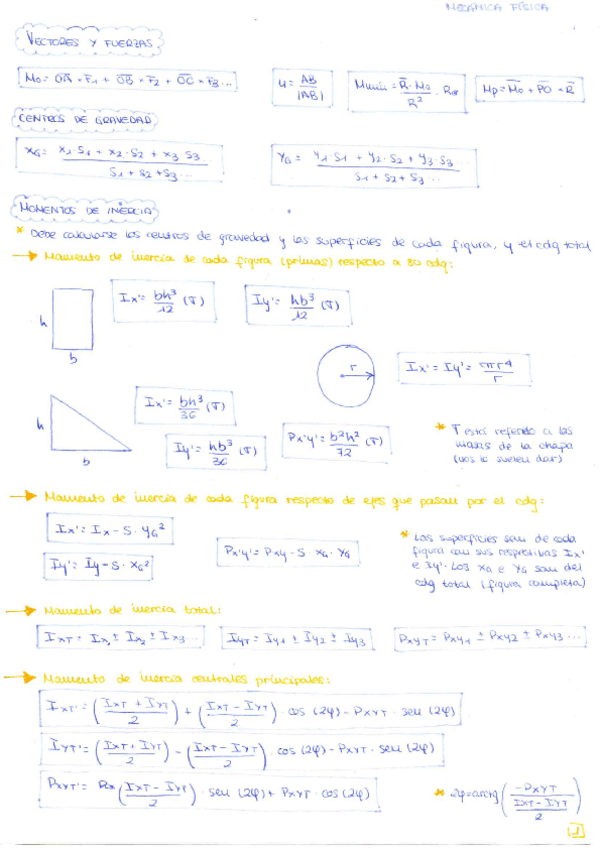 MECÁNICA FÍSICA
VECTORES Y FUERZAS
Mo = OA × F1 + OB × F2 + OC × F3...
u = AB / |AB|
Mmin = R · Mo / R² ·
Mp = Mo + PO × R
CENTROS DE GRAVEDAD
XG = x1·S1 + x2·S2 + x3 S3... / S1 + S2 + S3...
YG = y1·S1 + y2·S2 + y3·S3... / S1 + S2 + S3...
MOMENTOS DE INERCIA
* Debe calcularse los centros de gravedad y las superficies de cada figura, y el cdg total
→ Momento de inercia de cada figura (primas) respecto a su cdg:
h
b
Ix' = bh³/12 (σ)
Iy' = hb³/12 (σ)
r
Ix' = Iy' = πr⁴/r
h
b
Ix' = bh³/36 (σ)
Iy' = hb³/36 (σ)
Px'y' = b²h²/72 (σ)
* σ está referido a las
masas de la chapa
(nos lo suelen dar)
→ Momento de inercia de cada figura respecto de ejes que pasan por el cdg:
Ix' = Ix - S · YG²
Iy' = Iy - S · XG²
Px'y' = Pxy - S · XG · YG
* Las superficies son de cada
figura con sus respectivas Ix'
e Iy'. Los XG e YG son del
cdg total (figura completa)
→ Momento de inercia total:
IXT = Ix1 ± Ix2 ± Ix3...
IYT = Iy1 ± Iy2 ± Iy3
PXYT = Pxy1 ± Pxy2 ± Pxy3...
→ Momento de inercia centrales principales:
IXT' = (IXT + IYT / 2) + (IXT - IYT / 2) · cos (2φ) - PXYT · sen (2φ)
IYT' = (IXT + IYT / 2) - (IXT - IYT / 2) · cos (2φ) - PXYT · sen (2φ)
PXYT' = (IXT - IYT / 2) · sen (2φ) + PXYT · cos (2φ)
* 2φ = arctg (-PXYT / (IXT - IYT / 2))
1